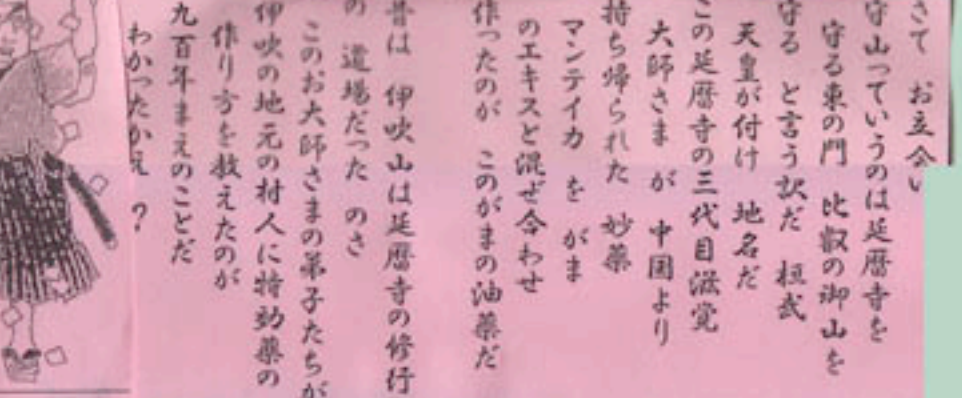 さて お立会い
守山っていうのは延暦寺を
守る東の門 比叡の御山を
守る と言う訳だ 桓武
天皇が付け 地名だ
この延暦寺の三代目滋覚
大師さま が 中国より
持ち帰られた 妙薬
マンテイカ を がま
のエキスと混ぜ合わせ
作ったのが このがまの油薬だ
昔は 伊吹山は延暦寺の修行
の 道場だった のさ
このお大師さまの弟子たちが
伊吹の地元の村人に特効薬の
作り方を教えたのが
九百年まえのことだ
わかったかえ ?